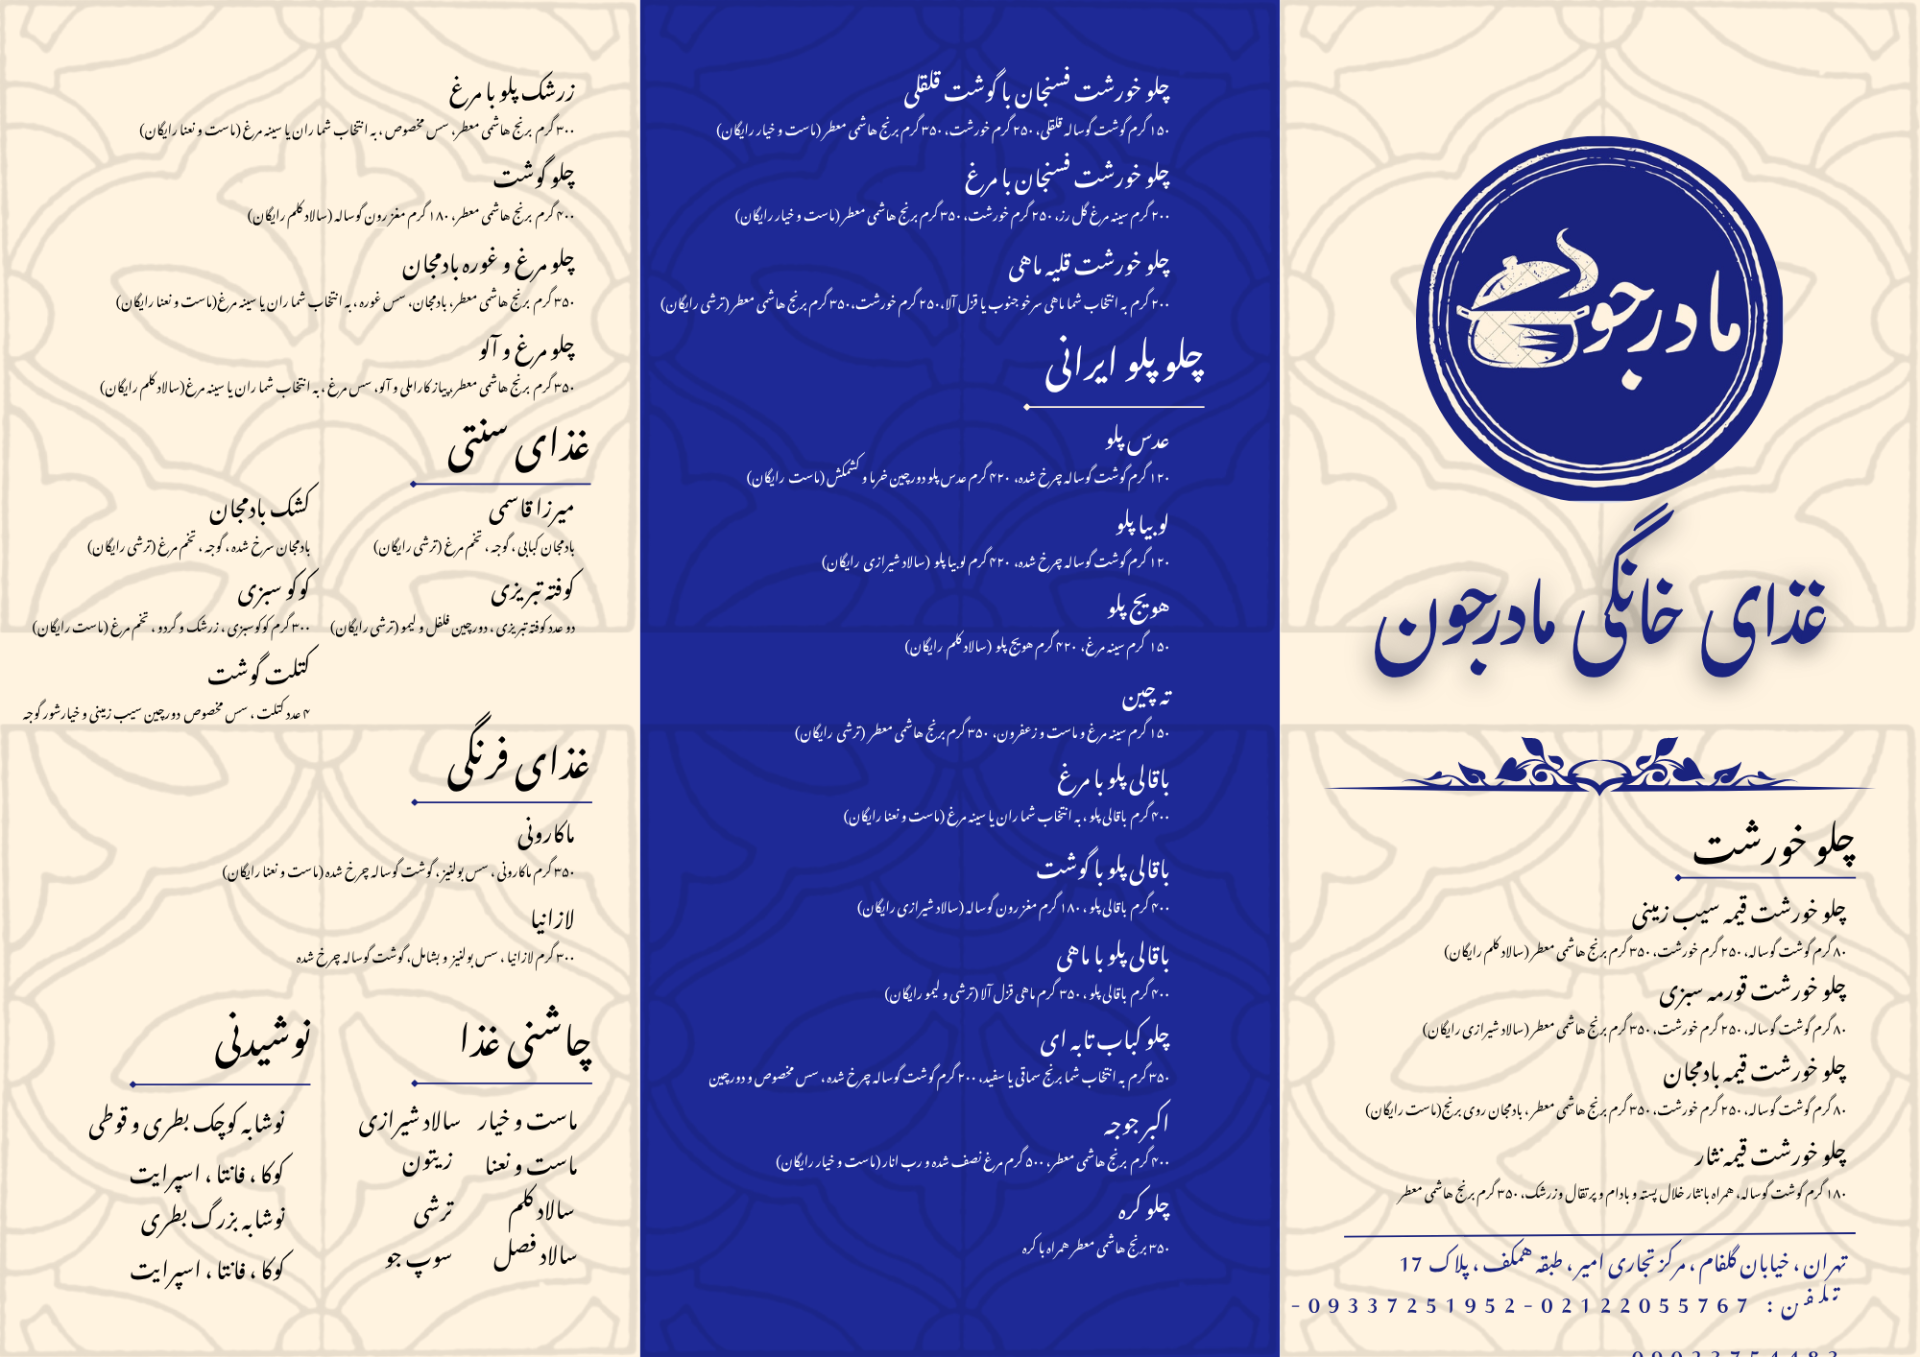 مادرجو
غذای خانگی مادرجون
چلو خورشت
چلو خورشت قیمه سیب زمینی
۸۰ گرم گوشت گوساله، ۲۵۰ گرم خورشت، ۳۵۰ گرم برنج هاشمی معطر (سالاد کلم رایگان)
چلو خورشت قورمه سبزی
۸۰ گرم گوشت گوساله، ۲۵۰ گرم خورشت، ۳۵۰ گرم برنج هاشمی معطر (سالاد شیرازی رایگان)
چلو خورشت قیمه بادمجان
۸۰ گرم گوشت گوساله، ۲۵۰ گرم خورشت، ۳۵۰ گرم برنج هاشمی معطر، بادمجان روی برنج(ماست رایگان)
چلو خورشت قیمه نثار
۱۸۰ گرم گوشت گوساله، همراه با نثار خلال پسته و بادام و پرتقال وزرشک، ۳۵۰ گرم برنج هاشمی معطر
تهران ، خیابان گلفام ، مرکز تجاری امیر ، طبقه همکف ، پلاک 17
تلفن: 02122055767-09337251952-
چلو خورشت فسنجان با گوشت قلقلی
۱۵۰ گرم گوشت گوساله قلقلی، ۲۵۰ گرم خورشت، ۳۵۰ گرم برنج هاشمی معطر (ماست و خیار رایگان)
چلو خورشت فسنجان با مرغ
۲۰۰ گرم سینه مرغ گل رز، ۲۵۰ گرم خورشت، ۳۵۰ گرم برنج هاشمی معطر (ماست و خیار رایگان)
چلو خورشت قلیه ماهی
۲۰۰ گرم به انتخاب شما ماهی سرخو جنوب یا قزل آلا، ۲۵۰ گرم خورشت، ۳۵۰ گرم برنج هاشمی معطر (ترشی رایگان)
چلو پلو ایرانی
عدس پلو
۱۲۰ گرم گوشت گوساله چرخ شده، ۴۲۰ گرم عدس پلو دورچین خرما و کشمکش (ماست رایگان)
لوبیا پلو
۱۲۰ گرم گوشت گوساله چرخ شده، ۴۲۰ گرم لوبیا پلو (سالاد شیرازی رایگان)
هویج پلو
۱۵۰ گرم سینه مرغ، ۴۲۰ گرم هویج پلو (سالاد کلم رایگان)
ته چین
۱۵۰ گرم سینه مرغ و ماست و زعفرون، ۳۵۰ گرم برنج هاشمی معطر (ترشی رایگان)
باقالی پلو با مرغ
۴۰۰ گرم باقالی پلو ، به انتخاب شما ران یا سینه مرغ (ماست و نعنا رایگان)
باقالی پلو با گوشت
۴۰۰ گرم باقالی پلو ، ۱۸۰ گرم مغز رون گوساله (سالاد شیرازی رایگان)
باقالی پلو با ماهی
۴۰۰ گرم باقالی پلو ، ۳۵۰ گرم ماهی قزل آلا (ترشی و لیمو رایگان)
چلو کباب تابه ای
۳۵۰ گرم به انتخاب شما برنج سماقی یا سفید، ۲۰۰ گرم گوشت گوساله چرخ شده ، سس مخصوص و دورچین
اکبر جوجه
۴۰۰ گرم برنج هاشمی معطر، ۵۰۰ گرم مرغ نصف شده و رب انار (ماست و خیار رایگان)
چلو کره
۳۵۰ برنج هاشمی معطر همراه با کره
زرشک پلو با مرغ
۳۰۰ گرم برنج هاشمی معطر، سس مخصوص ، به انتخاب شما ران یا سینه مرغ (ماست و نعنا رایگان)
چلو گوشت
۴۰۰ گرم برنج هاشمی معطر، ۱۸۰ گرم مغز رون گوساله (سالاد کلم رایگان)
چلو مرغ و غوره بادمجان
۳۵۰ گرم برنج هاشمی معطر، بادمجان، سس غوره ، به انتخاب شما ران یا سینه مرغ(ماست و نعنا رایگان)
چلو مرغ و آلو
۳۵۰ گرم برنج هاشمی معطر، پیاز کاراملی و آلو، سس مرغ ، به انتخاب شما ران یا سینه مرغ(سالاد کلم رایگان)
غذای سنتی
میرزا قاسمی
بادمجان کبابی ، گوجه ، تخم مرغ (ترشی رایگان)
کوفته تبریزی
دو عدد کوفته تبریزی ، دورچین فلفل و لیمو (ترشی رایگان)
کشک بادمجان
بادمجان سرخ شده ، گوجه ، تخم مرغ (ترشی رایگان)
کوکو سبزی
۳۰۰ گرم کوکو سبزی ، زرشک و گردو ، تخم مرغ (ماست رایگان)
کتلت گوشت
۴ عدد کتلت ، سس مخصوص دورچین سیب زمینی و خیارشور گوجه
غذای فرنگی
ماکارونی
۳۵۰ گرم ماکارونی ، سس بولنیز ، گوشت گوساله چرخ شده (ماست و نعنا رایگان)
لازانیا
۳۰۰ گرم لازانیا ، سس بولنیز و بشامل، گوشت گوساله چرخ شده
چاشنی غذا
ماست و خیار
ماست و نعنا
سالاد کلم
سالاد فصل
سالاد شیرازی
زیتون
ترشی
سوپ جو
نوشیدنی
نوشابه کوچک بطری و قوطی
کوکا ، فانتا ، اسپرایت
نوشابه بزرگ بطری
کوکا ، فانتا ، اسپرایت